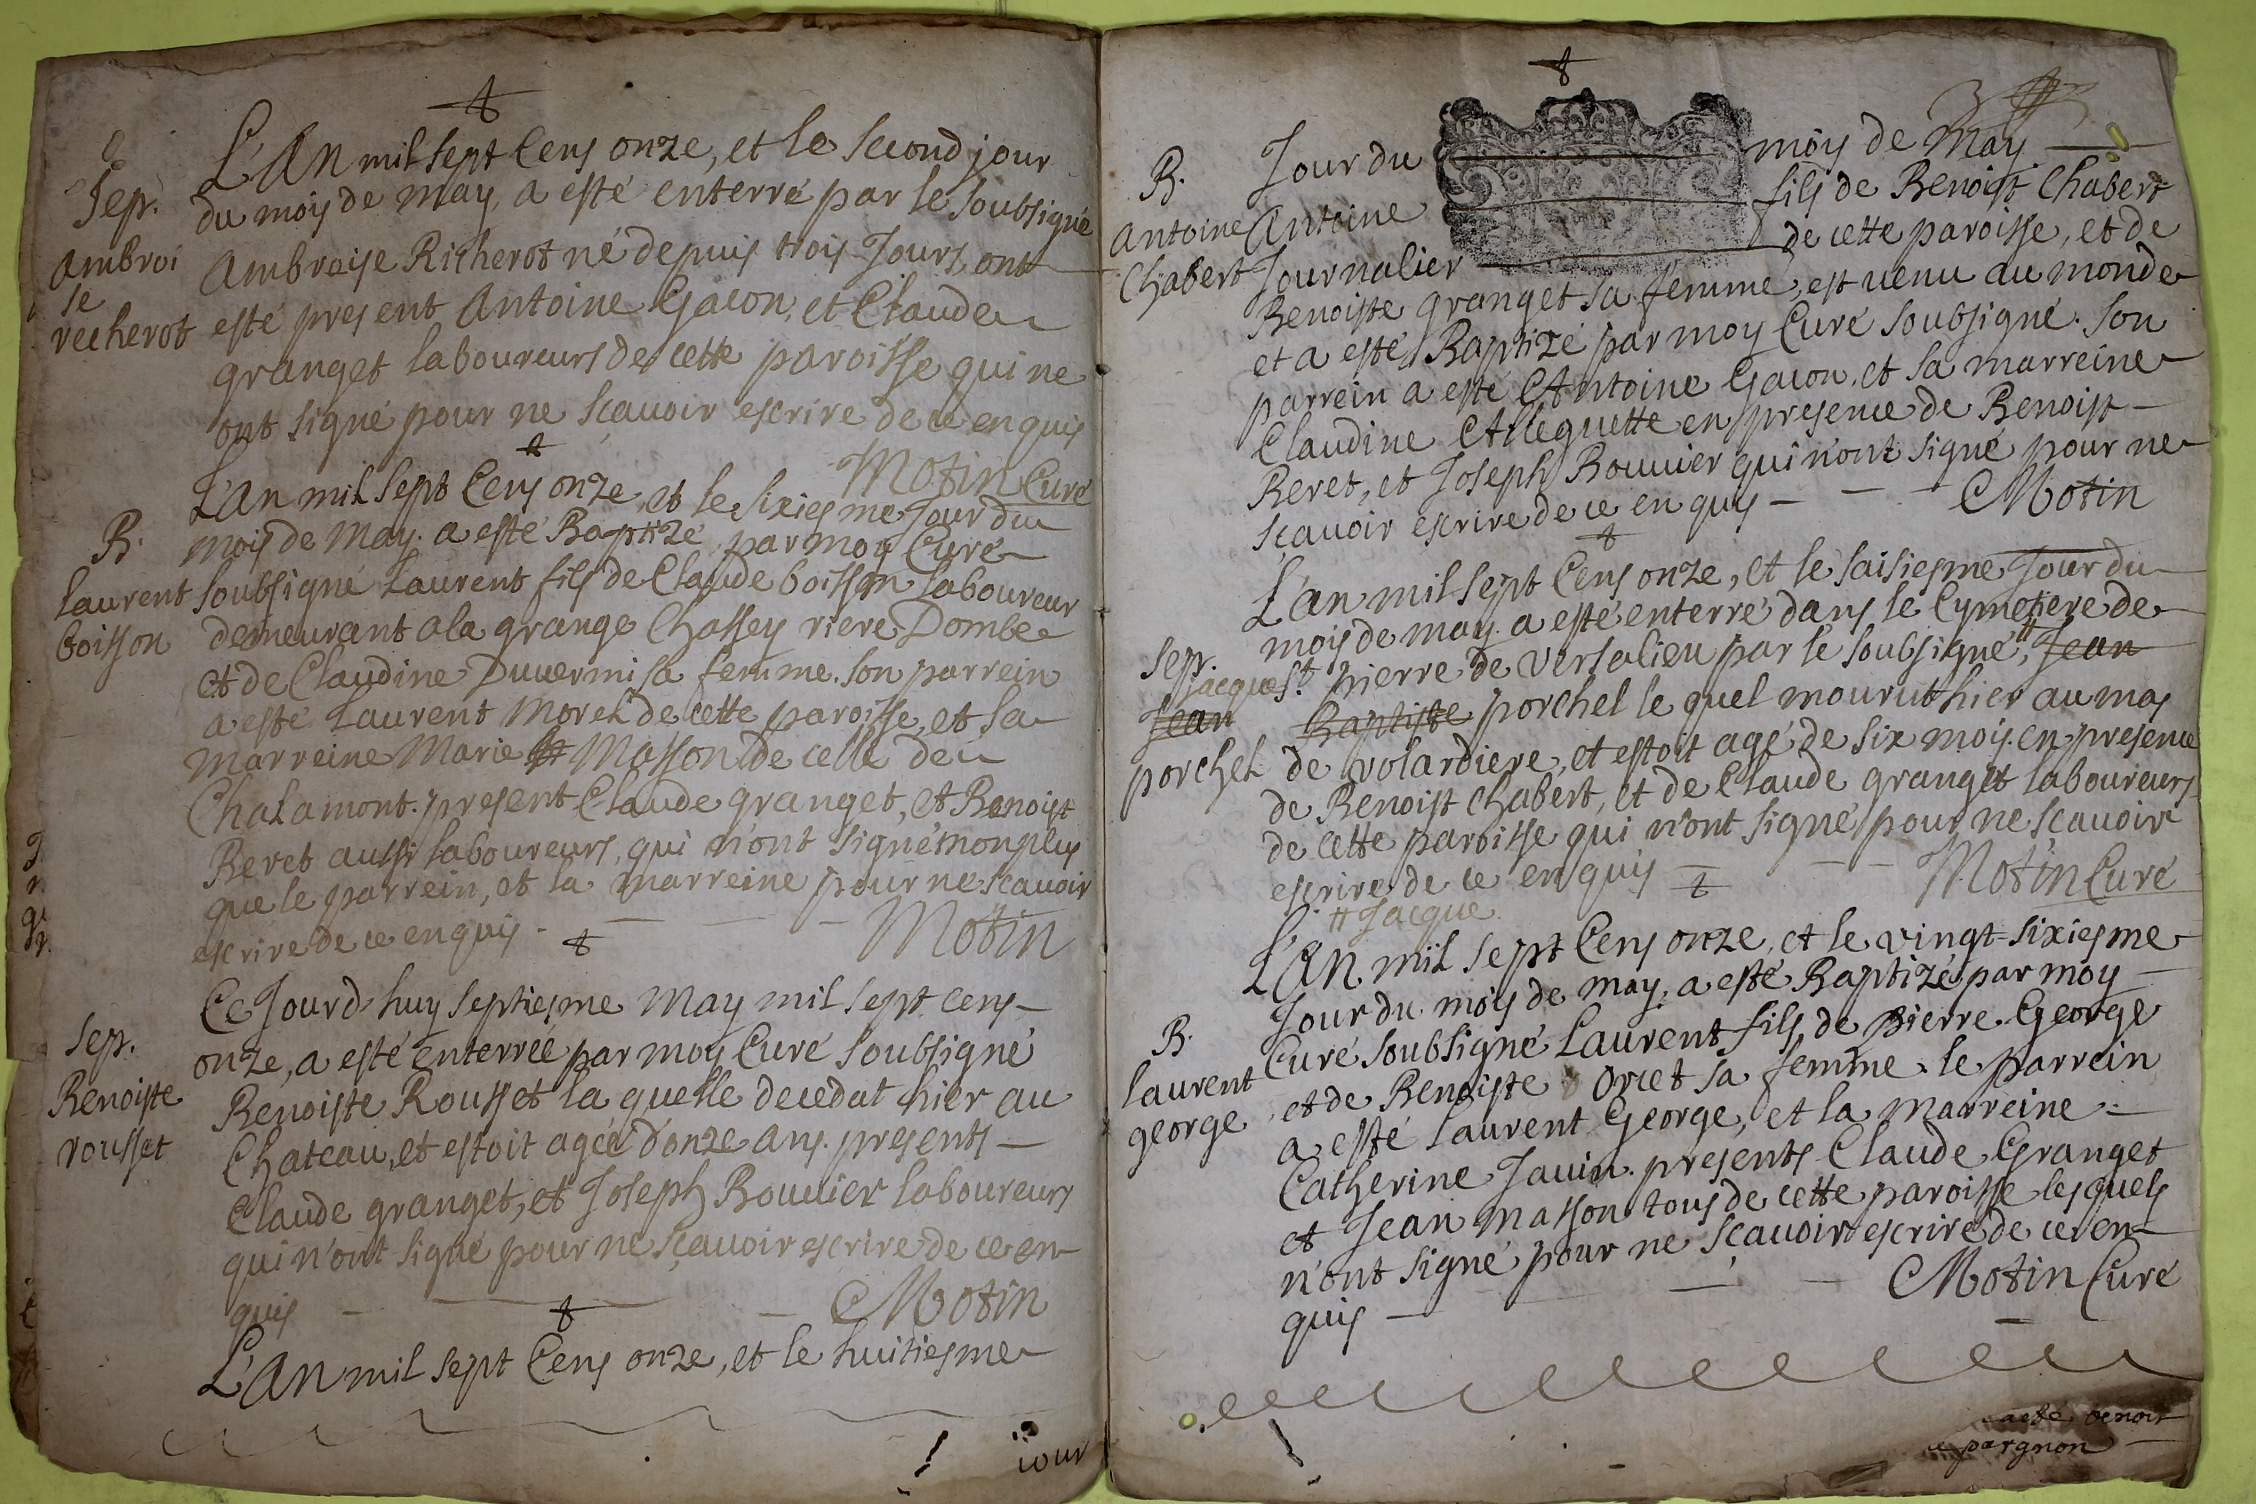 L'An mil sept Cens onze, et le second jour
du moys de may, a esté enterré par le soubsigné
Sep.
Ambroi
se
recherot
Ambroise Richerot né depuis trois Jours, ont
esté present Antoine Gacon, et Claude
granget laboureurs de cette paroisse qui ne
ont signé pour ne scavoir escrire de ce enquis
Motin Curé
L'an mil sept Cens onze, et le sixiesme Jour du
B.
laurent
boisson
mois de May. a esté Baptizé par moy Curé
soubsigné Laurent fils de Claude boisson laboureur
demeurant a la grange Chassey riere Dombe
et de Claudine Duvermi sa femme. son parrein
a esté Laurent Morel de cette paroisse, et sa
marreine Marie Masson de celle de
Chalamont. present Claude granget, et Benoist
Beret aussi laboureurs, qui n'ont signé non plus
que le parrein, et la marreine pour ne scavoir
escrire de ce enquis - Motin
Ce Jourd'huy septiesme May mil sept cens
Sep.
Benoiste
rousset
onze, a esté enterrée par moy Curé soubsigné
Benoiste Rousset la quelle decedat hier au
Chateau, et estoit agée d'onze ans. presents
Claude granget, et Joseph Bouvier laboureurs
qui n'ont signé pour ne sçavoir escrire de ce en
quis - Motin
L'An mil sept Cens onze, et le huitiesme
iour
Jour du moys de May
B.
Antoine
Chabert
Antoine fils de Benoist Chabert
Journalier de cette paroisse, et de
Benoiste granget sa femme, est venu au monde
et a esté Baptizé par moy Curé soubsigné. son
parrein a esté Antoine Gacon, et sa marreine
Claudine Alleguette en presence de Benoist
Beret, et Joseph Bouvier qui n'ont signé pour ne
scavoir escrire de ce en quis - Motin
L'an mil sept Cens onze, et le saisiesme Jour du
mois de may. a esté enterré dans le Cymetiere de
Sep.
jacque
Jean
porchel
St. pierre de Versalieu par le soubsigné, # Jean
Baptiste porchel le quel mourut hier au mas
de volardiere, et estoit agé de six mois. en presence
de Benoist Chabert, et de Claude granget laboureurs
de cette paroisse qui n'ont signé pour ne scavoir
escrire de ce enquis - Motin Curé
# Jacque
L'An mil sept Cens onze, et le vingt-sixiesme
Jour du mois de may, a esté Baptizé par moy
B.
laurent
george
Curé soubsigné Laurent fils de Pierre George
et de Benoiste Orcet sa femme. le parrein
a esté Laurent George, et la marreine
Catherine Javin. presents Claude Granget
et Jean Masson tous de cette paroisse lesquels
n'ont signé pour ne scavoir escrire de ce en
quis - Motin Curé
benoit
pargnon